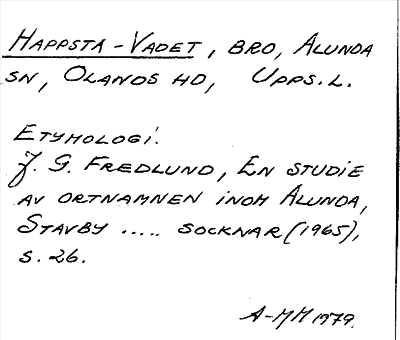 HAPPSTA-VADET, BRO, ALUNDA
SN, OLANDS HD, UPPS. L.
ETYMOLOGI.
J. G. FREDLUND, EN STUDIE
AV ORTNAMNEN INOM ALUNDA,
STAVBY ..... SOCKNAR (1965),
S. 26.
A-MM 1979.